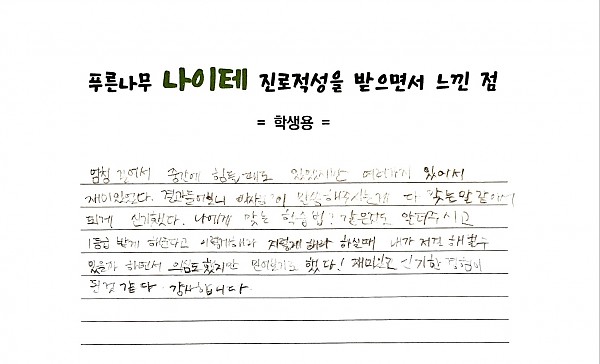 푸른나무 나이테 진로적성을 받으면서 느낀 점
= 학생용 =
엄청 길어서 중간에 힘들때도 있었지만 여러가지 있어서
재미있었다. 결과들어보니 이 말씀해주시는게 다 맞는말 같아서
되게 신기했다. 나에게 맞는 학습법? 같은것도 알려주시고
1등급 받게 해준다고 이렇게해라 저렇게 해라 하실때 내가 저걸 해낼수
있을까 하면서 의심도 했지만 믿어보기로 했다! 재미있고 신기한 경험이
된것 같다. 감사합니다.